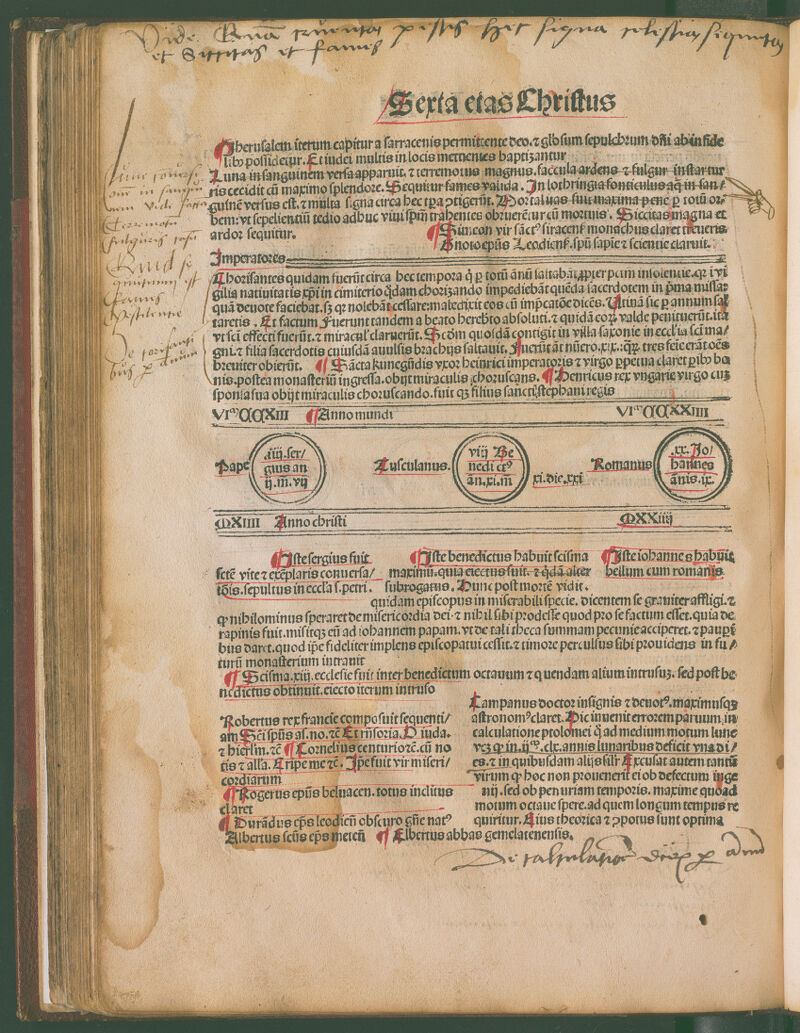 Vide
pestis hec signa celestia
et Siccitas et fames
Sexta etas Christus
Iherusalem iterum capitur a sarracenis permittente deo. ⁊ gl'osum sepulchrum dñi ab infide
lib' possidetur. Et iudei multis in locis metuentes baptizantur
Luna in sanguinem versa apparuit. ⁊ terremotus magnus. faccula ardens ⁊ fulgur instar tur
ris cecidit cū maximo splendore. Sequitur fames valida. In lothringia fonticulus aq̄ in san/
guinē versus est. ⁊ multa signa circa hec tp̄a ꝯtigerūt. Mortalitas fuit maxima pene ꝑ totū or
bem: vt sepelientiū tedio adhuc viui sp̄m trahentes obruerēt̄ cū mortuis. Siccitas magna et
ardor sequitur.
¶ Simeon vir sāctꝰ siracenꝰ monachus claret treueris
Notoep̄us Leodienꝭ. sp̄u sapīe ⁊ scientie claruit.
Imperatores
Chorisantes quidam fuerūt circa hec tempora q̄ ꝑ totū ānū saltabāt ꝓpter pcm̄ insolentie. qr̄ ī vi
gilis natiuitatis xp̄i in cimiterio q̄dam chorizando impediebāt quēda sacerdotem in p̄ma missa:
quā deuote faciebat. sꝫ qr̄ nolebāt cessare: maledixit eos cū imp̄catōe dicēs. Vtinā sic ꝑ annum sal
taretis. Et factum Fuerunt tandem a beato hereberto absoluti. ⁊ quidā eorꝫ valde penituerūt. ita
vt sc̄i effecti fuerūt. ⁊ miracul' claruerūt. Scd̄m quosdā contigit in villa saxonie in eccl'ia sc̄i ma/
gni. ⁊ filia sacerdotis cuiusdā auulsis brachijs saltauit. Fuerūt āt nūero. xix. q̄rꝫ tres feīe erāt oēs
breuiter obierūt. ¶ Sācta kunegūdis vxor heinrici imperatoris ⁊ virgo ꝑpetua claret ꝑ ib' be
nis. postea monasteriū ingressa. obijt miraculis choruscans. ¶ Henricus rex vngarie virgo cuꝫ
sponsa sua obijt miraculis choruscando. fuit qꝫ filius sancti stephani regis
VIᵐ CCXIII ¶ Anno mundi VIᵐ CCXXIIII
Pape
.iiij. ser/
gius an
ij. m. vij
Tusculanus.
viij Be
nedictꝰ
an. xi. m
xi. die. xxi
Romanus
.xx. Jo/
hannes
ānis. ix.
MXIIII Anno christi MXXiiij
¶ Iste sergius fuit
scte vite ⁊ exēplaris conuersa/
tōis. sepultus in eccl'a s. petri.
¶ Iste benedictus habuit scisma
maximū. quia eiectus fuit. ⁊ q̄dā alter
subrogatus. Hunc post mortē vidit
¶ Iste iohannes habuit
bellum cum romanis.
quidam episcopus in miserabili specie. dicentem se grauiter affligi. ⁊
ꝙ nihilominus speraret de misericordia dei. ⁊ nihil sibi prodesse quod pro se factum esset. quia de
rapinis fuit. misitqꝫ eū ad iohannem papam. vt de tali theca summam pecunie acciperet. ⁊ pauꝑi
bus daret. quod ip̄e fideliter implens episcopatui cessit. ⁊ timore perculsus sibi prouidens in fu/
turū monasterium intrauit
¶ Scisma. xiij. ecclesie fuit inter benedictum octauum ⁊ quendam alium intrusuꝫ. sed post be
nedictus obtinuit. eiecto iterum intruso
Robertus rex francie composuit sequenti/
am Sc̄i sp̄us as. no. ⁊ē Et rn̄soria. O iuda.
⁊ hierl'm. ⁊ē ¶ Cornelius centurio ⁊ē. cū no
tis ⁊ alīa. Eripe me ⁊ē. Ip̄e fuit vir miseri/
cordiarum
¶ Rogerus ep̄us beluacen. totus inclitus
claret
¶ Durādus ep̄s leodicn̄ obscuro gn̄e natꝰ
Albertus sc̄us ep̄s metcn̄ ¶ Elbertus abbas gemelatenensis.
Campanus doctor insignis ⁊ deuotꝰ. maximusqꝫ
astronomꝰ claret. Hic inuenit errorem paruum in
calculatione ptolomei ꝙ ad medium motum lune
vcꝫ ꝙ in. ijᶜ. clx. annis lunaribus deficit vna di/
es. ⁊ in quibusdam alijs sil'r Excusat autem tantū
virum ꝙ hoc non prouenerit ei ob defectum inge
nij. sed ob penuriam temporis. maxime quoad
motum octaue spere. ad quem longum tempus re
quiritur. Eius theorica ⁊ ꝯpotus sunt optima